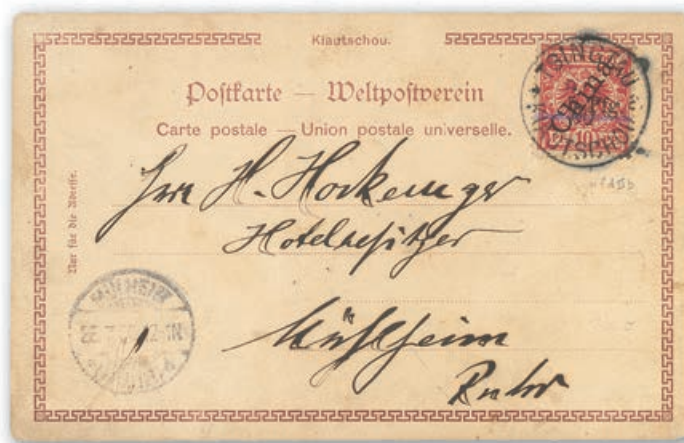 Kiautschou.
Postkarte — Weltpostverein
Carte postale — Union postale universelle.
Nur für die Adresse.
TSINGTAU
China
10
H. Hockemeyer
Hotelbesitzer
Mühlheim
Ruhr